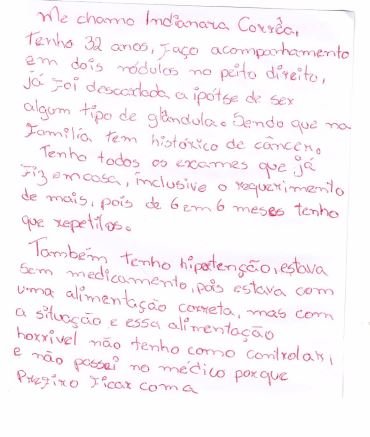 Me chamo Indianara Corrêa,
tenho 32 anos, faço acompanhamento
em dois nódulos no peito direito,
já foi descardada a ipótse de ser
algum tipo de glândula. Sendo que na
família tem histórico de câncer.
Tenho todos os exames que já
fiz em casa, inclusive o requerimento
de mais, pois de 6 em 6 meses tenho
que repetilos.
Também tenho hipotenção, estava
sem medicamento, pois estava com
uma alimentação correta, mas com
a situação e essa alimentação
horrivel não tenho como controlar,
e não passei no médico porque
Prefiro ficar com a